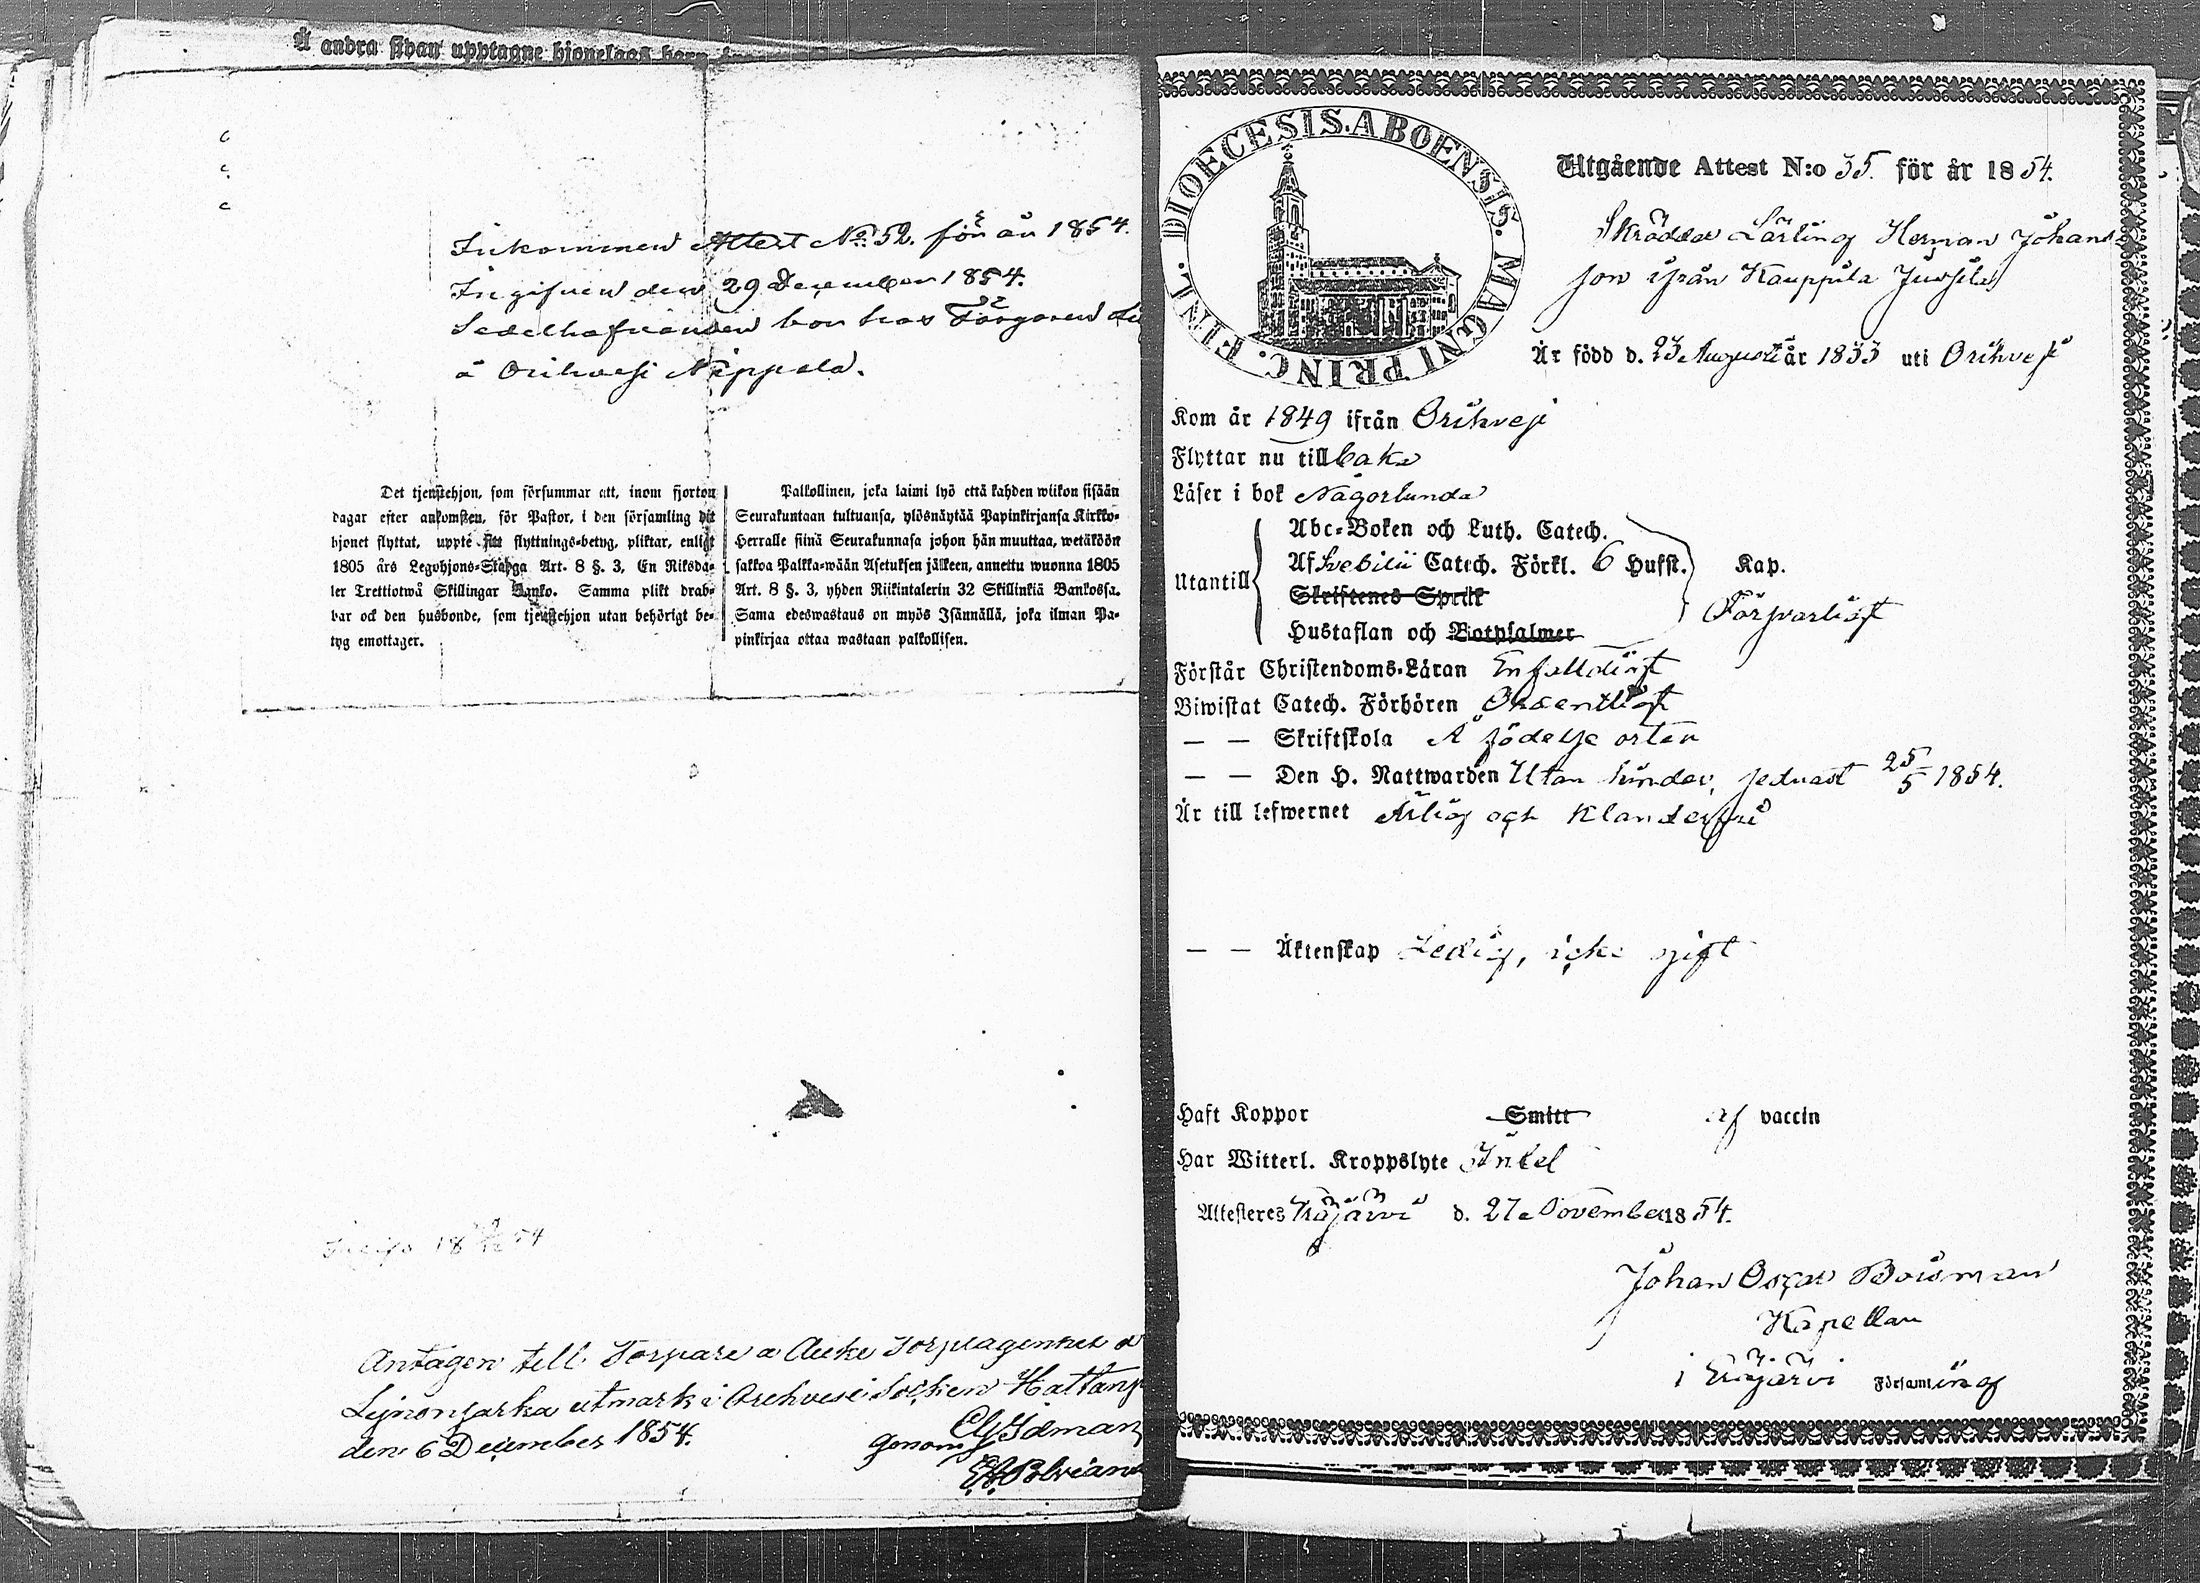 Å andra sidan upptagne hjonelags
Inkommen Attest No: 52. för år 1854.
Ingifven den 29 December 1854.
Sedelhafvanden bor hos
å Orihvesi Näppela.
Det tjenstehjon, som försummar att, inom fjorton
dagar efter ankomsten, för Pastor, i den församling dit
hjonet flyttat, uppte sitt flyttnings-betyg, pliktar, enligt
1805 års Legohjons-Stadga Art. 8 §. 3, En Riksda-
ler Trettiotwå Skillingar Banko. Samma plikt drab-
bar ock den husbonde, som tjenstehjon utan behörigt be-
tyg emottager.
Palkollinen, joka laimi lyö että kahden wiikon sisään
Seurakuntaan tultuansa, ylösnäytää Papinkirjansa Kirkko-
Herralle siinä Seurakunnasa johon hän muuttaa, wetäköön
sakkoa Palkka-wään Asetuksen jälkeen, annettu wuonna 1805
Art. 8 §. 3, yhden Riikintalerin 32 Skillinkiä Bankossa.
Sama edeswastaus on myös Isännällä, joka ilman Pa-
pinkirjaa ottaa wastaan palkollisen.
Antagen till Torpare a
utmark i Orihvesi Socken
den 6 December 1854.
genom
DIOECESIS. ABOENSIS. MAGNI PRINC. FINL.
Utgående Attest N:o 35. för år 1854.
Skräddar Lärling Herman Johans
son ifrån Kauppila Jussila
Är född d. 23 Augusti år 1833 uti Orihvesi
Kom år 1849 ifrån Orihvesi
Flyttar nu tillbaka
Läser i bok Någorlunda
Utantill
Abc-Boken och Luth. Catech.
Af Svebilii Catech. Förkl. 6 Hufst. Kap.
Skriftenes Språk
Försvarligt
Hustaflan och Botpsalmer
Förstår Christendoms-Läran Enfaldigt
Biwistat Catech. Förhören Ordentligt
— — Skriftskola Å födelse orten
— — Den H. Nattwarden Utan hinder, sednast 25/5 1854.
Är till lefwernet Ärlig och Klanderfri
— — Äktenskap Ledig, icke gift
Haft Koppor Smitt af vaccin
Har Witterl. Kroppslyte Intet
Attesteres d. 27 November 1854.
Johan Oscar Boisman
Kapellan
i församling